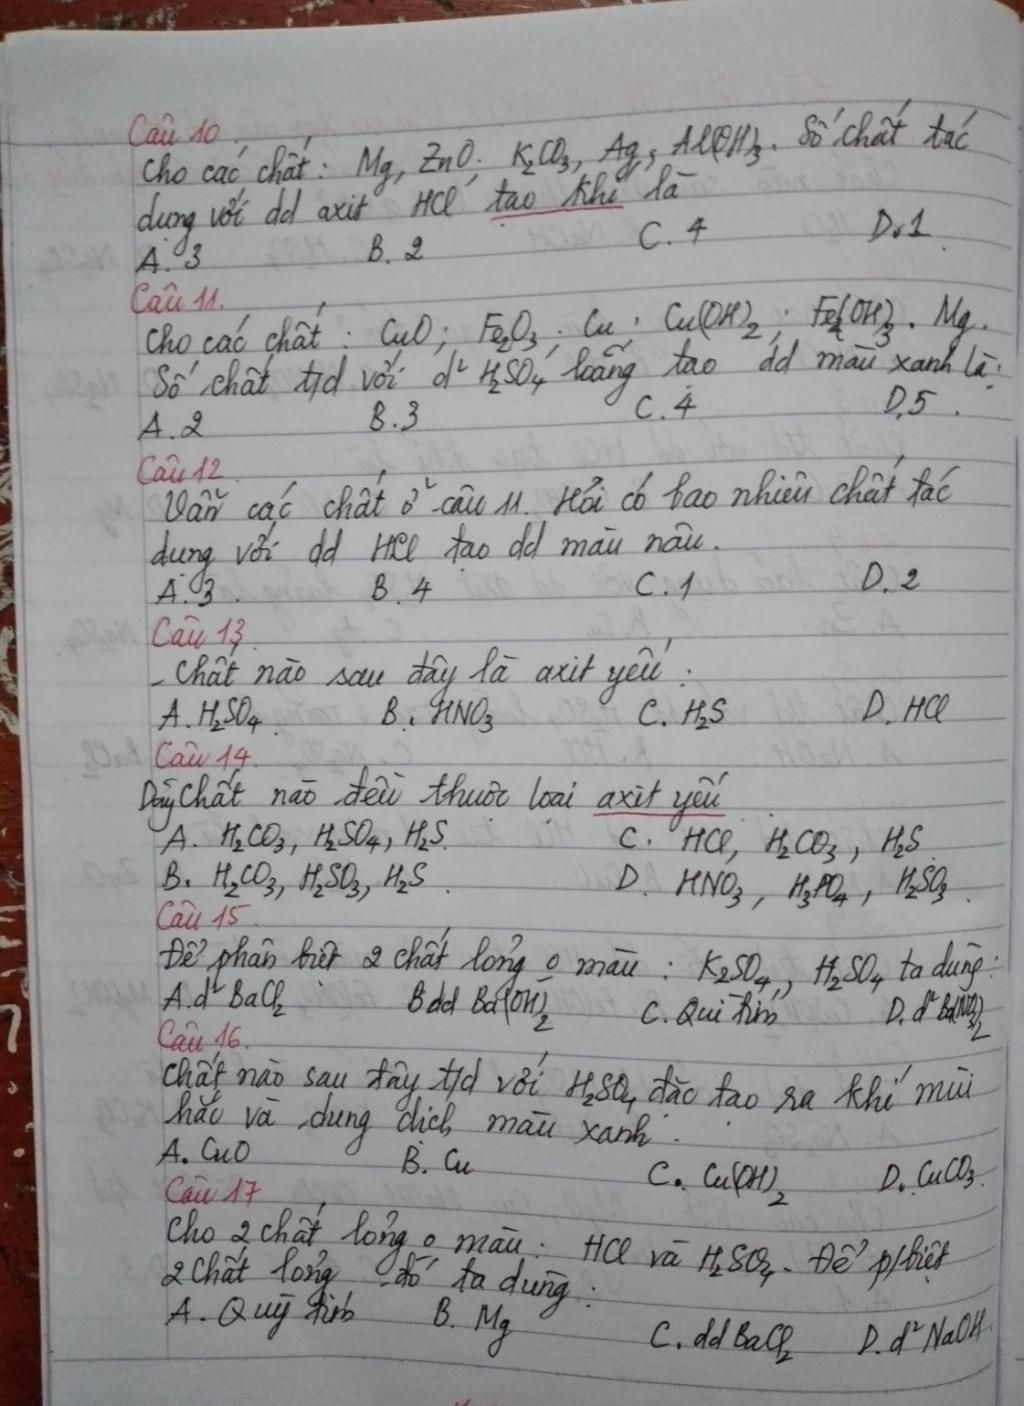 Câu 10.
Cho các chất: Mg, ZnO, K₂CO₃, Ag, Al(OH)₃. Số chất tác
dụng với dd axit HCl tạo khí là
A. 3 B. 2 C. 4 D. 1
Câu 11.
Cho các chất : CuO; Fe₂O₃; Cu; Cu(OH)₂; Fe(OH)₃. Mg.
Số chất t/d với d² H₂SO₄ loãng tạo dd màu xanh là:
A. 2 B. 3 C. 4 D. 5.
Câu 12.
Vẫn các chất ở câu 11. Hỏi có bao nhiêu chất tác
dụng với dd HCl tạo dd màu nâu.
A. 3. B. 4 C. 1 D. 2
Câu 13.
- Chất nào sau đây là axit yếu:
A. H₂SO₄ B. HNO₃ C. H₂S D. HCl
Câu 14.
Dãy chất nào đều thuộc loại axit yếu
A. H₂CO₃, H₂SO₄, H₂S. C. HCl, H₂CO₃, H₂S.
B. H₂CO₃, H₂SO₃, H₂S. D. HNO₃, H₃PO₄, H₂SO₃.
Câu 15.
Để phân biệt 2 chất lỏng o màu : K₂SO₄, H₂SO₄ ta dùng:
A. d² BaCl₂ B dd Ba(OH)₂ C. Quì tím D. d² Ba(NO₃)₂
Câu 16.
Chất nào sau đây t/d với H₂SO₄ đặc tạo ra khí mùi
hắc và dung dịch màu xanh.
A. CuO B. Cu C. Cu(OH)₂ D. CuCO₃.
Câu 17
Cho 2 chất lỏng o màu: HCl và H₂SO₄. Để p/biệt
2 chất lỏng đó ta dùng:
A. Quỳ tím B. Mg C. dd BaCl₂ D. d² NaOH